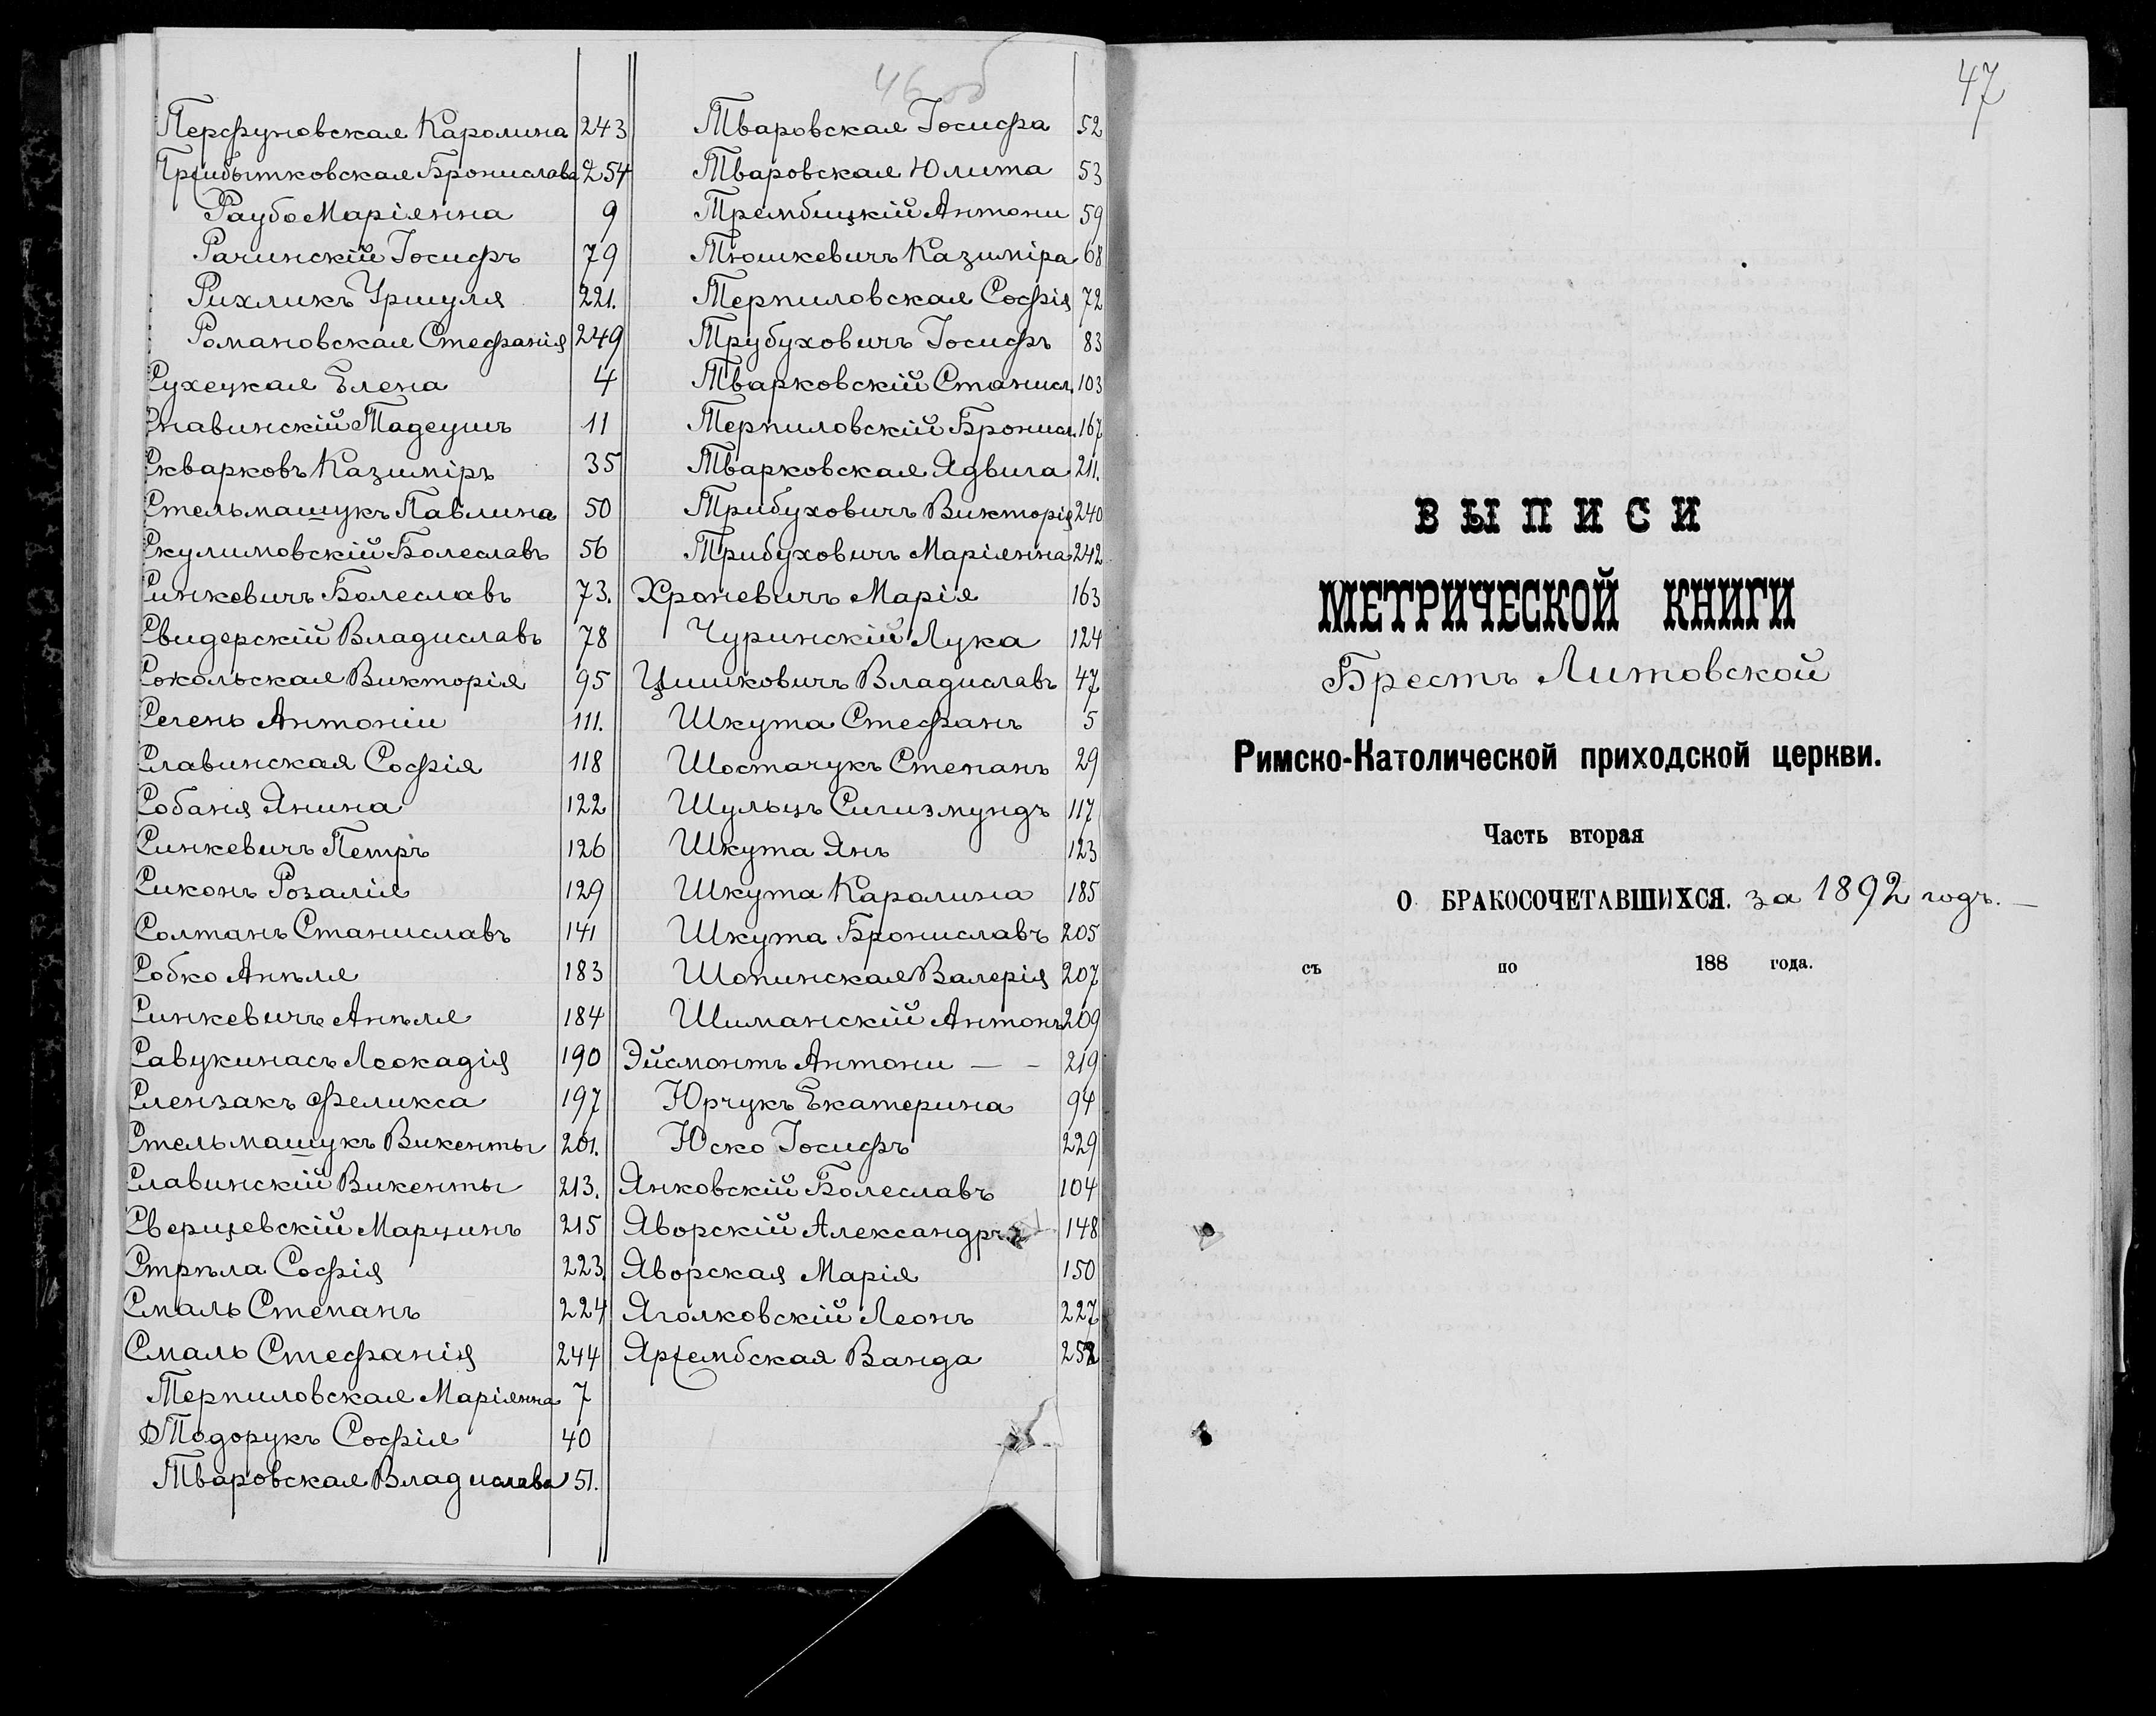 46 об
Перфуновская Каролина 243
Пржибытковская Бронислава 254
Раубо Маріянна 9
Рачинскій Іосифъ 79
Рихликъ Уршуля 221.
Романовская Стефанія 249
Сухецкая Елена 4
Славинскій Тадеушъ 11
Скварковъ Казиміръ 35
Стельмащукъ Павлина 50
Скулимовскій Болеславъ 56
Синкевичъ Болеславъ 73.
Свидерскій Владиславъ 78
Сокольская Викторія 95
Селень Антоніи 111.
Славинская Софія 118
Собаня Янина 122
Синкевичъ Петръ 126
Сиконъ Розалія 129
Солтанъ Станиславъ 141
Собко Анѣля 183
Синкевичъ Анѣля 184
Савукинасъ Леокадія 190
Слензакъ Феликса 197
Стельмащукъ Викенты 201.
Славинскій Викенты 213.
Сверщевскій Марцинъ 215
Стрѣла Софія 223.
Смаль Степанъ 224
Смаль Стефанія 244
Терпиловская Маріянна 7
Тодорукъ Софія 40
Тваровская Владислава 51.
Тваровская Іосифа 52
Тваровская Юлита 53
Трембицкій Антони 59
Тюшкевичъ Казиміра 68
Терпиловская Софія 72
Трубуховичъ Іосифъ 83
Тварковскій Станисл. 103
Терпиловскій Бронисл. 167
Тварковская Ядвига 211.
Трибуховичъ Викторія 240
Трибуховичъ Маріянна 242
Хроневичъ Марія 163
Чуринскій Лука 124
Цишковичъ Владиславъ 47
Шкута Стефанъ 5
Шостачукъ Степанъ 29
Шульцъ Сигизмундъ 117
Шкута Янъ 123
Шкута Каролина 185
Шкута Брониславъ 205
Шопинская Валерія 207
Шиманскій Антонъ 209
Эйсмонтъ Антони — - 219
Юрчукъ Екатерина 94
Юско Іосифъ 229
Янковскій Болеславъ 104
Яворскій Александръ 148
Яворская Марія 150
Яголковскій Леонъ 227
Яржембская Ванда 252
47
ВЫПИСИ
МЕТРИЧЕСКОЙ КНИГИ
Брестъ Литовской
Римско-Католической приходской церкви.
Часть вторая
О БРАКОСОЧЕТАВШИХСЯ. за 1892 годъ. —
съ по 188 года.